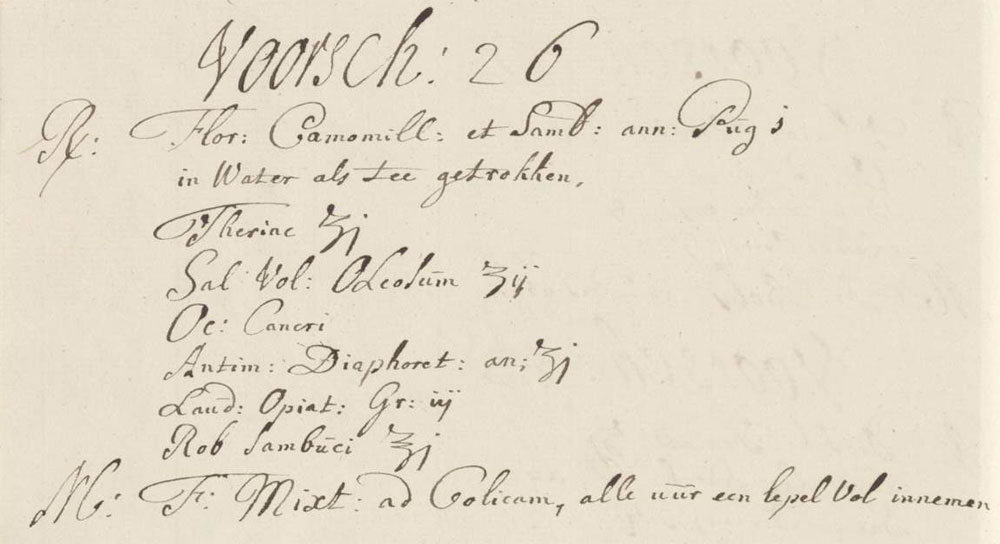 Voorsch: 26
℞: Flor: Camomill: et Samb: ann: Pug j
in Water als tee getrokken,
Theriac ʒj
Sal Vol: Oleosum ʒij
Oc: Cancri
Antim: Diaphoret: an: ʒj
Laud: Opiat: Gr: iij
Rob Sambuci ʒj
M: F: Mixt: ad Colicam, alle uur een lepel Vol innemen